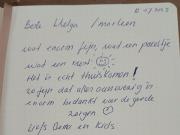 Beste Helga / Marleen
wat enorm fijn, wat een paradijs
wat een rust
Het is echt thuiskomen!
zo fijn dat alles aanwezig is
enorm bedankt voor de goede
zorgen
liefs en Kids